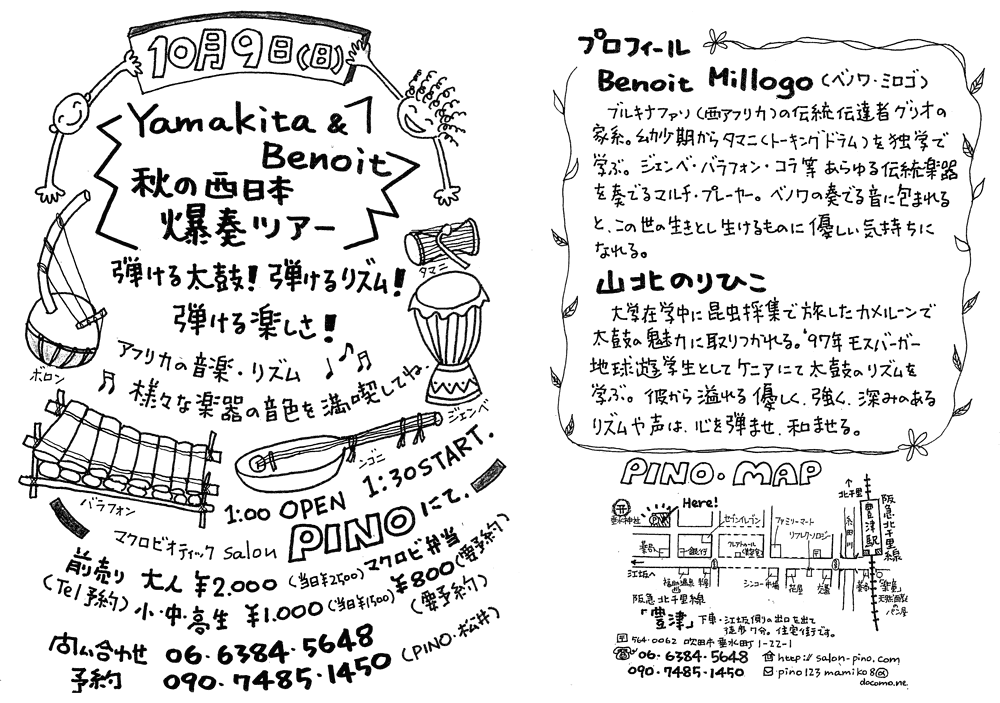 10月9日(日)
Yamakita &
Benoit
秋の西日本
爆奏ツアー
弾ける太鼓! 弾けるリズム!
弾ける楽しさ!
アフリカの音楽・リズム
様々な楽器の音色を満喫してね。
タマニ
ボロン
ジェンベ
ンゴニ
バラフォン
1:00 OPEN 1:30 START.
マクロビオティック salon PINOにて.
前売り 大人 ¥2.000 (当日¥2500) マクロビ弁当
(Tel予約) 小・中・高生 ¥1.000 (当日¥1500) ¥800 (要予約)
(要予約)
問い合わせ 06・6384・5648
予約 090・7485・1450 (PINO・松井)
プロフィール
Benoit Millogo (ベノワ・ミロゴ)
ブルキナファソ(西アフリカ)の伝統伝達者グリオの
家系。幼少期からタマニ(トーキングドラム)を独学で
学ぶ。ジェンベ・バラフォン・コラ等あらゆる伝統楽器
を奏でるマルチ・プレーヤー。ベノワの奏でる音に包まれる
と、この世の生きとし生けるものに優しい気持ちに
なれる。
山北のりひこ
大学在学中に昆虫採集で旅したカメルーンで
太鼓の魅力に取りつかれる。'97年モスバーガー
地球遊学生としてケニアにて太鼓のリズムを
学ぶ。彼から溢れる優しく、強く、深みのある
リズムや声は、心を弾ませ、和ませる。
PINO・MAP
Here!
北千里
垂水神社
PINO
セブンイレブン
ファミリーマート
リフレクソロジー
糸田川
豊津駅
阪急北千里線
銀行
江坂へ
花屋
パン屋
阪急北千里線
「豊津」下車・江坂側の出口を出て
徒歩7分。住宅街です。
〒564-0062 吹田市垂水町1-22-1
06・6384・5648 http://salon-pino.com
090・7485・1450 pino123mamiko8@
docomo.ne.